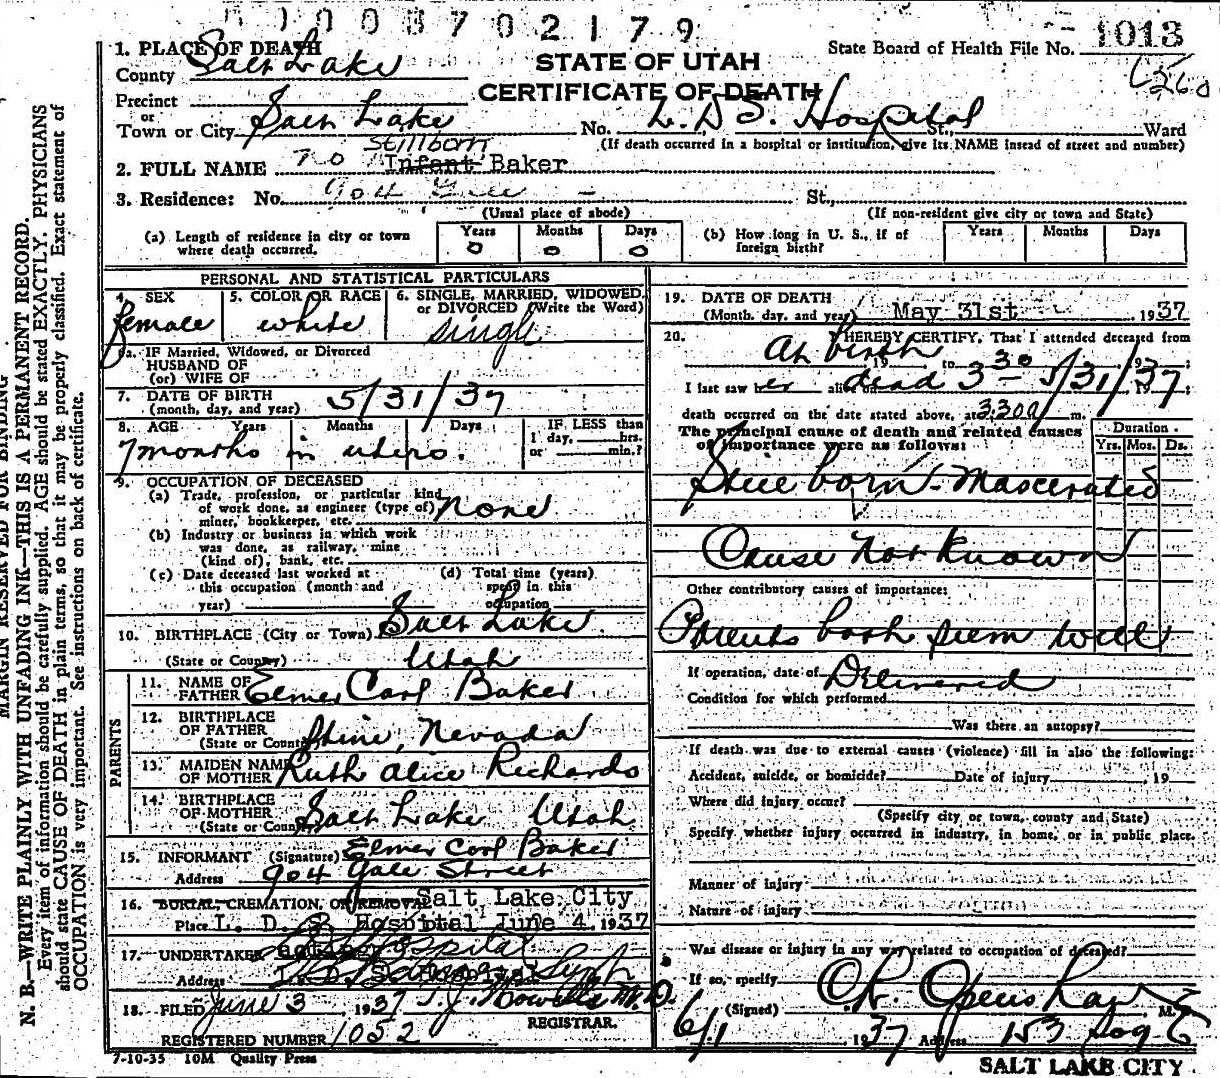 01003702179
1. PLACE OF DEATH
County Salt Lake
STATE OF UTAH
State Board of Health File No. 1013
CERTIFICATE OF DEATH
Precinct
or
Town or City Salt Lake No. L. D S. Hospital St., Ward
(If death occurred in a hospital or institution, give its NAME insead of street and number)
Stillborn
2. FULL NAME no Infant Baker
3. Residence: No. 904 St.,
(Usual place of abode) (If non-resident give city or town and State)
(a) Length of residence in city or town where death occurred. Years 0 Months 0 Days 0
(b) How long in U. S., if of foreign birth? Years Months Days
PERSONAL AND STATISTICAL PARTICULARS
4. SEX female
5. COLOR OR RACE white
6. SINGLE, MARRIED, WIDOWED, or DIVORCED (Write the Word) single
6a. IF Married, Widowed, or Divorced
HUSBAND OF
(or) WIFE OF
7. DATE OF BIRTH
(month, day, and year) 5/31/37
8. AGE Years Months Days IF LESS than
1 day, hrs.
or min.?
7 months in utero.
9. OCCUPATION OF DECEASED
(a) Trade, profession, or particular kind
of work done, as engineer (type of)
miner, bookkeeper, etc. none
(b) Industry or business in which work
was done, as railway, mine
(kind of), bank, etc.
(c) Date deceased last worked at
this occupation (month and
year)
(d) Total time (years)
spent in this
occupation
10. BIRTHPLACE (City or Town) Salt Lake
(State or Country) Utah
PARENTS
11. NAME OF
FATHER Elmer Carl Baker
12. BIRTHPLACE
OF FATHER
(State or Country) Nevada
13. MAIDEN NAME
OF MOTHER Ruth Alice Richards
14. BIRTHPLACE
OF MOTHER
(State or Country) Salt Lake Utah
15. INFORMANT (Signature) Elmer Carl Baker
Address 904 Gale Street
16. BURIAL, CREMATION, OR REMOVAL Salt Lake City
Place L. D. S. Hospital June 4, 1937
17. UNDERTAKER Hospital
Address L. D. S. Hospital
18. FILED June 3 1937 T. J. Howells M.D.
REGISTRAR.
REGISTERED NUMBER 1052
7-10-35 10M Quality Press
19. DATE OF DEATH
(Month, day, and year) May 31st, 1937
20. I HEREBY CERTIFY, That I attended deceased from
At birth 19 to 19
I last saw her alive on dead 3 30 5/31/37 19 ;
death occurred on the date stated above, at 3:30 a m.
The principal cause of death and related causes
of importance were as follows:
Duration
Yrs. Mos. Ds.
Still born - Mascerated
Cause not known
Other contributory causes of importance:
Parents both seem well
If operation, date of Delivered
Condition for which performed
Was there an autopsy?
If death was due to external causes (violence) fill in also the following:
Accident, suicide, or homicide? Date of injury , 19
Where did injury occur?
(Specify city or town, county and State)
Specify whether injury occurred in industry, in home, or in public place.
Manner of injury
Nature of injury
Was disease or injury in any way related to occupation of deceased?
If so, specify
(Signed) M.
6/1 1937 Address 153 So
SALT LAKE CITY
MARGIN RESERVED FOR BINDING
N. B.—WRITE PLAINLY WITH UNFADING INK—THIS IS A PERMANENT RECORD.
Every item of information should be carefully supplied. AGE should be stated EXACTLY. PHYSICIANS
should state CAUSE OF DEATH in plain terms, so that it may be properly classified. Exact statement of
OCCUPATION is very important. See instructions on back of certificate.